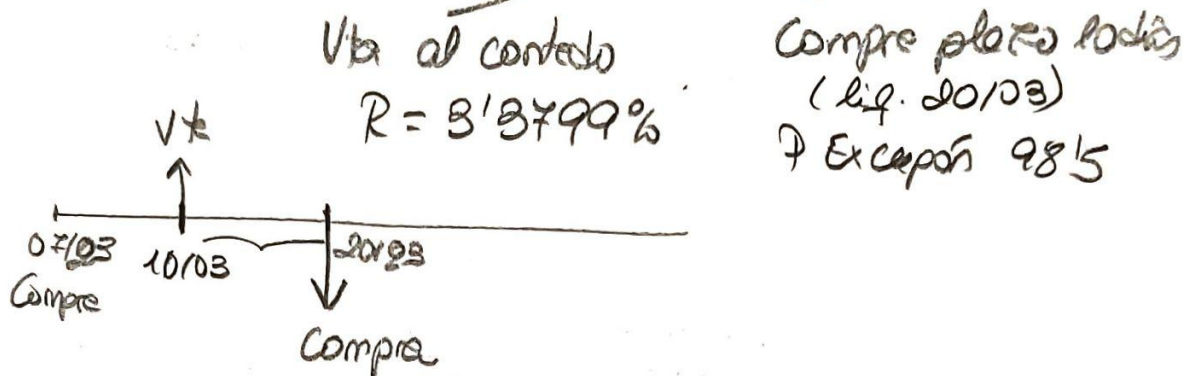 Vta al contado
R = 3'3799%
Compra plazo 10 días
(liq. 20/03)
P Excupón 98'5
Vta
07/03
10/03
20/03
Compra
Compra